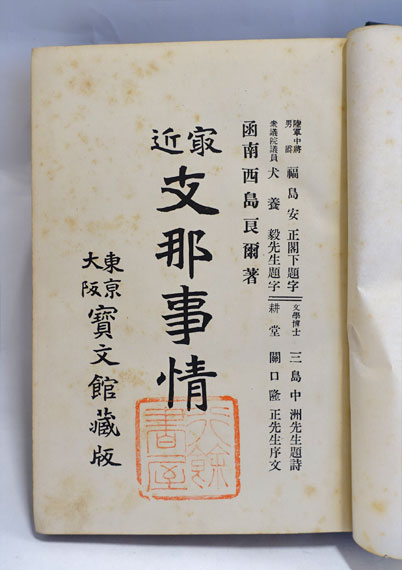 陸軍中將
男爵
福島安正閣下題字
文學博士 三島中洲先生題詩
衆議院議員 犬養毅先生題字
耕堂 關口隆正先生序文
函南西島良爾著
㝡近
支那事情
東京
大阪
寶文館藏版
行餘
書屋